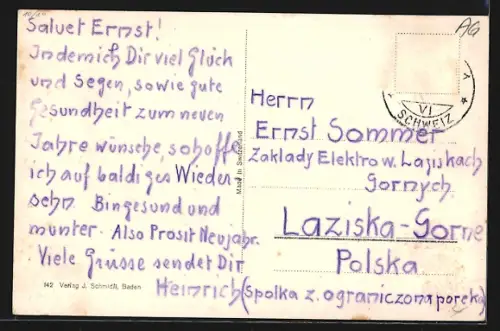 Saluet Ernst!
Indem ich Dir viel Glück
und Segen, sowie gute
Gesundheit zum neuen
Jahre wünsche, so hoffe
ich auf baldiges Wieder-
sehn. Bin gesund und
munter. Also Prosit Neujahr.
Viele Grüsse sendet Dir
Heinrich
AG
VI
SCHWEIZ
Herrn
Ernst Sommer
Zaklady Elektro w. Laziskach
Gornych.
Laziska-Gorne
Polska
(Spolka z. ograniczona poreka)
Made in Switzerland
142 Verlag J. Schmidli, Baden